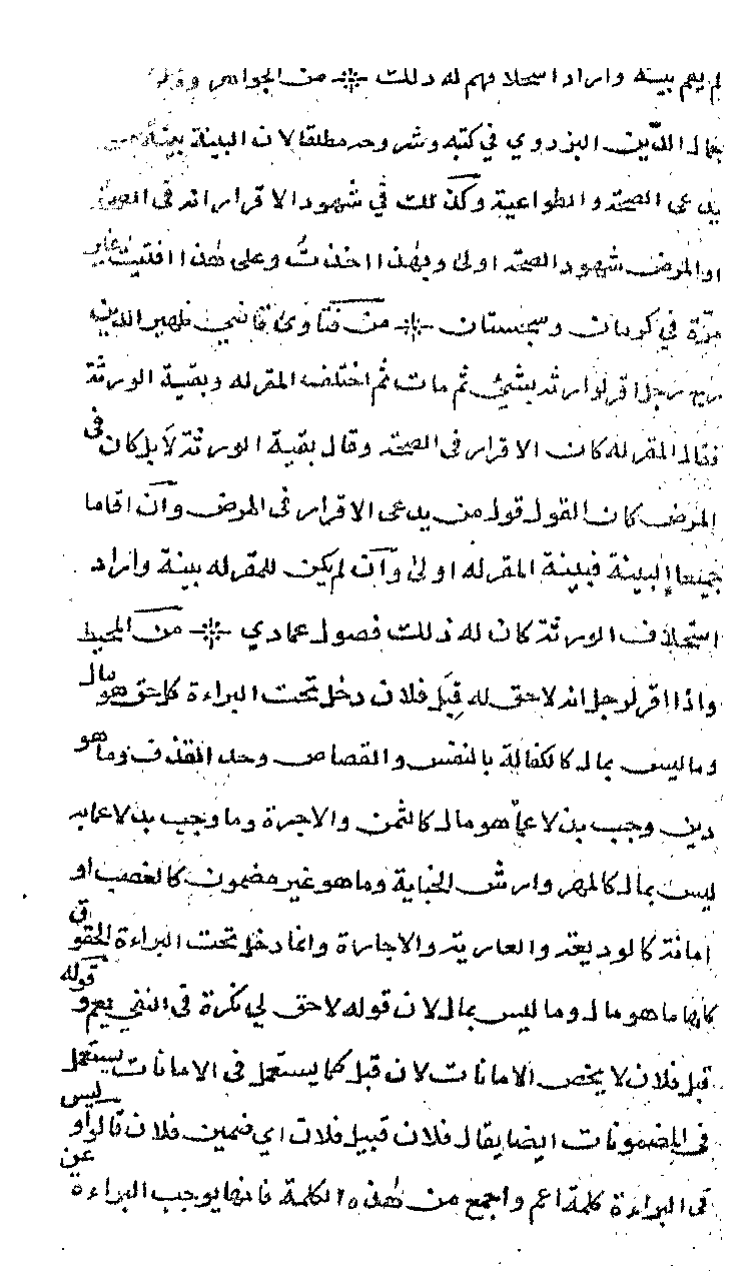 لم يقم بينة واراد استحلافهم له ذلك من الجواهر وقال
جمال الدين البزدوي في كتبه وشروحه مطلقا لان البينة بينة من
يدعى الصحة والطواعية وكذلك في شهود الاقرار انه في الصحة
او المرض شهود الصحة اولى وبهذا اخذت وعلى هذا افتيت غير
مرة في كرمان وسجستان من فتاوى قاضي ظهير الدين
رجل اقر لوارثه بشئ ثم مات ثم اختلف المقر له وبقية الورثة
فقال المقر له كان الاقرار في الصحة وقال بقية الورثة لا بل كان في
المرض كان القول قول من يدعى الاقرار في المرض وان اقاما
جميعا البينة فبينة المقر له اولى وان لم يكن للمقر له بينة واراد
استحلاف الورثة كان له ذلك فصول عمادي من المحيط
واذا اقر لرجل انه لاحق له قبل فلان دخل تحت البراءة كل حق هو مال
وما ليس بمال كالكفالة بالنفس والقصاص وحد القذف وما هو
دين وجب بدلا عما هو مال كالثمن والاجرة وما وجب بدلا عما
ليس بمال كالمهر وارش الجناية وما هو غير مضمون كالغصب او
امانة كالوديعة والعارية والاجارة وانما دخل تحت البراءة الحقوق
كلها ما هو مال وما ليس بمال لان قوله لاحق لي نكرة في النفي يعم وقوله
قبل فلان لا يخص الامانات لان قبل كما يستعمل في الامانات يستعمل
في المضمونات ايضا يقال فلان قبيل فلان اي ضمين فلان قالوا وليس
في البراءة كلمة اعم واجمع من هذه الكلمة فانها يوجب البراءة عن